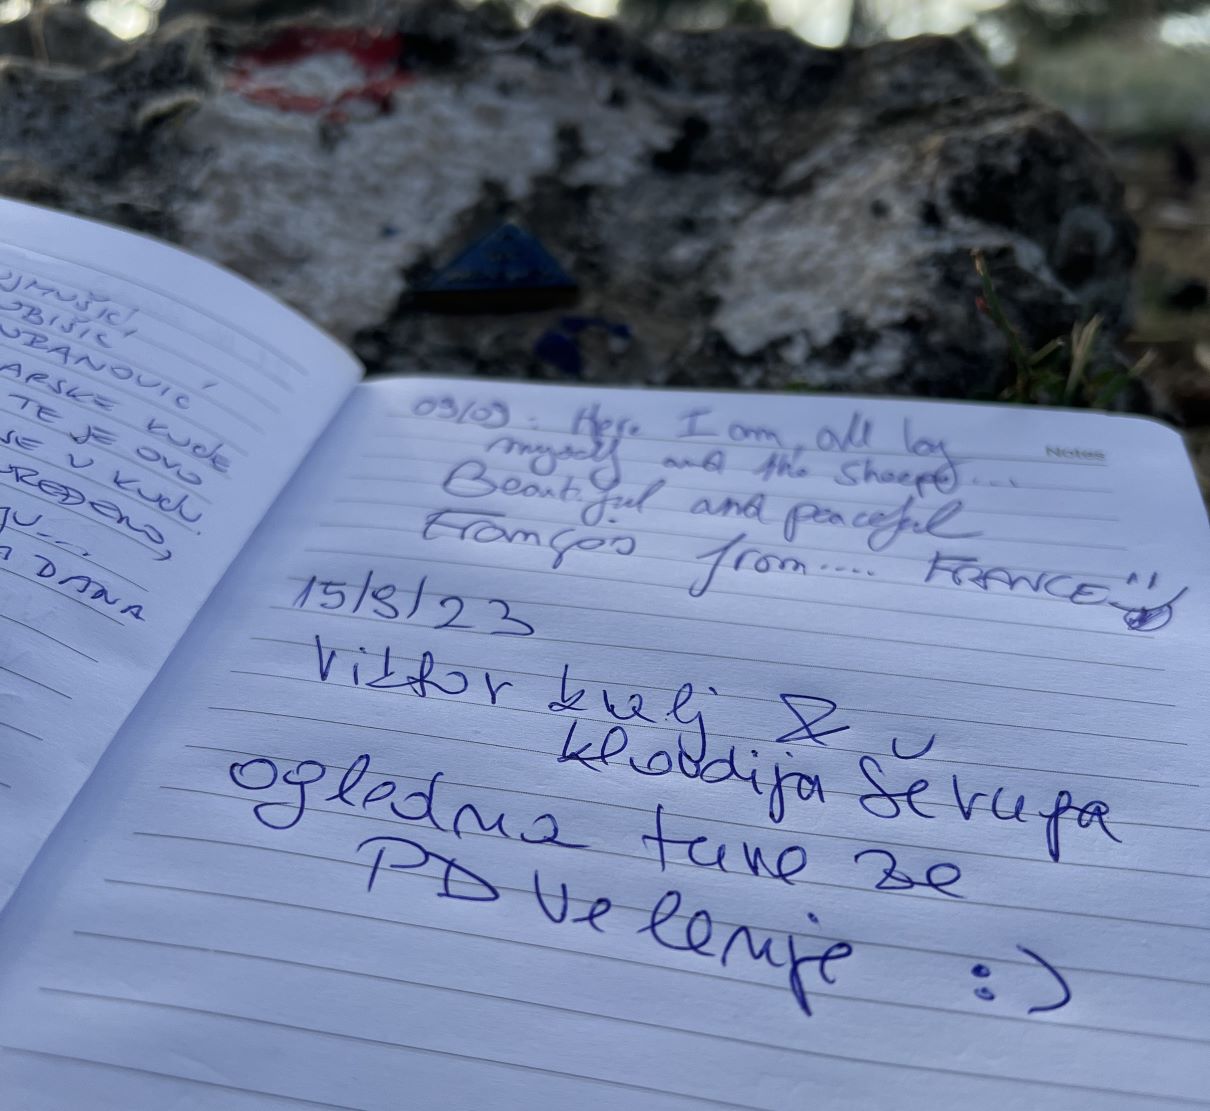 UDANOVIĆ
ARSKE KUĆE
TE JE OVO
SE U KUĆU.
UREĐENO,
DANA
Notes
09/09: Here I am, all by
myself and the sheeps...
Beautiful and peaceful
François from.... FRANCE
15/9/23
Viktor kralj &
Klavdija Ševupa
ogledna tura za
PD Velenje :)